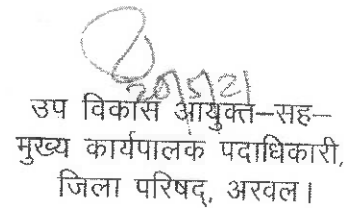 20/5/21
उप विकास आयुक्त–सह–
मुख्य कार्यपालक पदाधिकारी,
जिला परिषद्, अरवल।